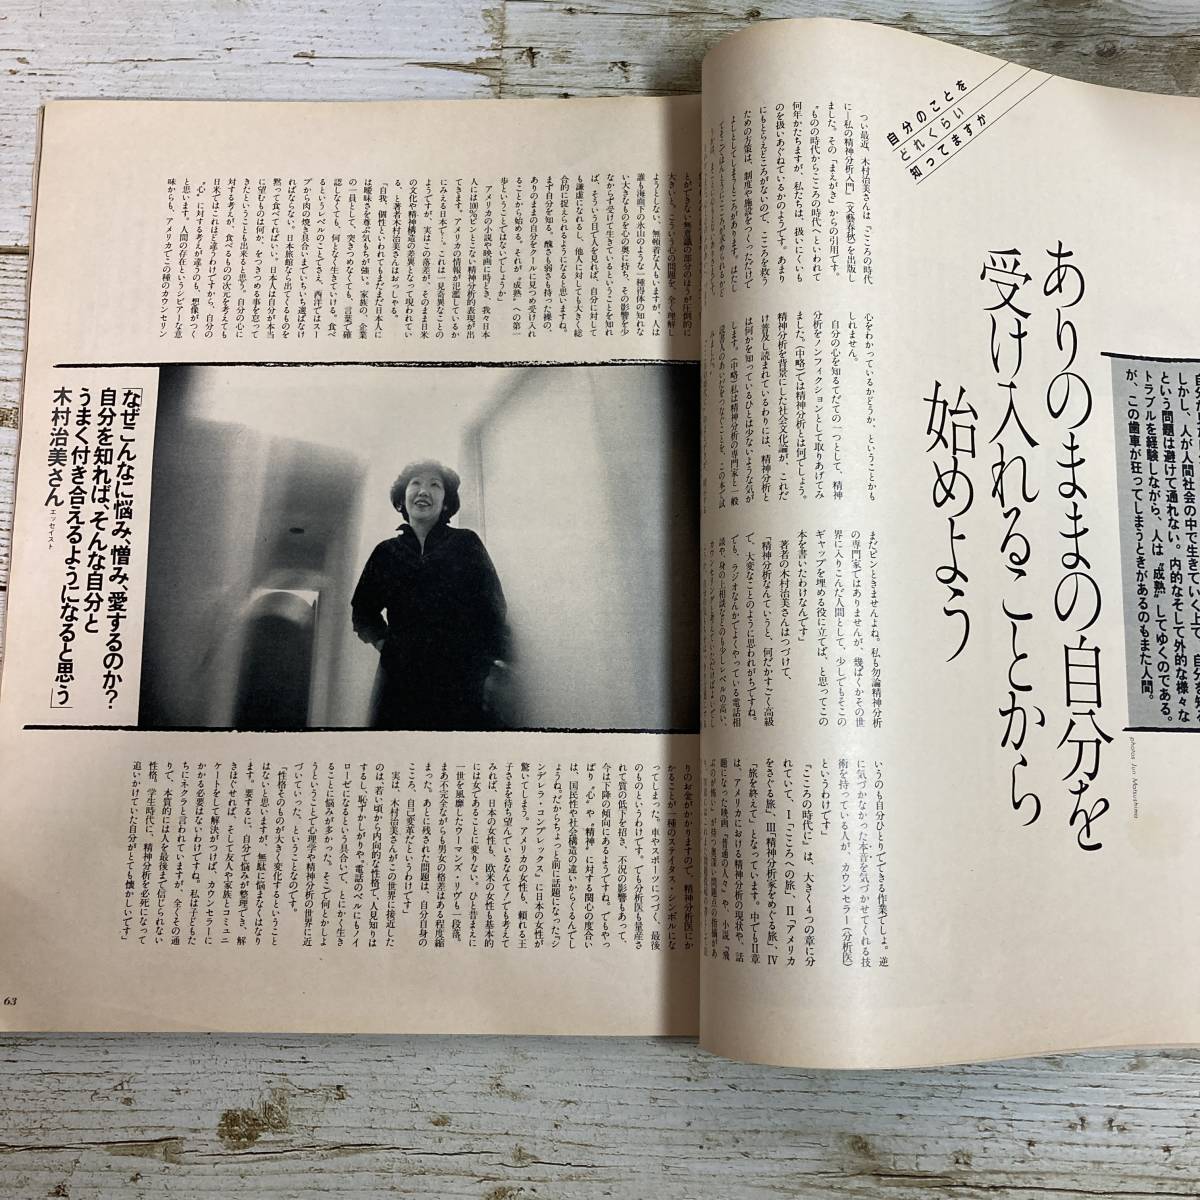 自分のことを
どれくらい
知ってますか
ありのままの自分を
受け入れることから
始めよう
しかし、人が人間社会の中で生きていく上で、自分を知る
という問題は避けて通れない。内的なそして外的な様々な
トラブルを経験しながら、人は〝成熟〟してゆくのである。
が、この歯車が狂ってしまうときがあるのもまた人間。
photos Jun Matsushima
つい最近、木村治美さんは『こころの時代
に―私の精神分析入門』(文藝春秋)を出版し
ました。その「まえがき」からの引用です。
〝ものの時代からこころの時代へといわれて
何年かたちますが、私たちは、扱いにくいも
のを扱いあぐねているかのようです。あまり
にもとらえどころがないので、こころを救う
ための方策は、制度や施設をつくっただけで
よしとしてしまうところがあります。はたし
心をわかっているかどうか、ということかも
しれません。
自分の心を知るてだての一つとして、精神
分析をノンフィクションとして取りあげてみ
ました。(中略)では精神分析とは何でしょう。
精神分析を背景にした社会文化論が、これだ
け普及し読まれているわりには、精神分析と
は何かを知っているひとは少ないような気が
します。(中略)私は精神分析の専門家と一般
読書人のあいだをつなぐことを、この本で試
まだピンときませんよね。私も勿論精神分析
の専門家ではありませんが、幾ばくかその世
界に入りこんだ人間として、少しでもそこの
ギャップを埋める役に立てば、と思ってこの
本を書いたわけなんです」
著者の木村治美さんはつづけて、
「精神分析なんていうと、何だかすごく高級
で、大変なことのように思われがちですね。
でも、ラジオなんかでよくやっている電話相
談や、身の上相談などのも少しレベルの高い、
いうのも自分ひとりでできる作業でしょ。逆
に気づかなかった本音を気づかせてくれる技
術を持っている人が、カウンセラー(分析医)
というわけです」
『こころの時代に』は、大きく4つの章に分
れていて、Ⅰ「こころへの旅」、Ⅱ「アメリカ
をさぐる旅」、Ⅲ「精神分析家をめぐる旅」、Ⅳ
「旅を終えて」となっています。中でもⅡ章
は、アメリカにおける精神分析の現状や、話
題になった映画『普通の人々』や、小説『飛
ぶのが怖い』が持つ奥深い問題点の指摘があ
とができない無意識の部分のほうが圧倒的に
大きいと。こういう心の問題を、全く理解し
ようとしない、無頓着な人もいますが、人は
誰も海面下の氷山のような一種得体の知れな
い大きなものを心の奥に持ち、その影響を少
なからず受けて生きているということを知れ
ば、そういう目で人を見れば、自分に対して
も謙虚になれるし、他人に対しても大きく総
合的に捉えられるようになると思いますね。
まず自分を知る。醜さも弱さも持った裸の、
ありのままの自分をクールに見つめ受け入れ
ることから始める。それが〝成熟〟への第一
歩ということではないでしょうか」
アメリカの小説や映画に時どき、我々日本
人には100%ピンとこない精神分析的表現が出
てきます。アメリカの情報が氾濫しているか
にみえる日本で―。これは一見奇異なことの
ようですが、実はこの落差が、そのまま日米
の文化や精神構造の差異となって現われてい
る、と著者木村治美さんはおっしゃる。
「自我、個性といわれてもまだまだ日本人に
は曖昧さを尊ぶ気もちが強い。家族の、企業
の一員として、突きつめなくても、言葉で確
認しなくても、何となく生きていける。食べ
るというレベルのことでさえ、西洋ではスー
プから肉の焼き具合いまでいちいち選ばなけ
ればならない。日本旅館なら出てくるものを
黙って食べてればいい。日本人は自分が本当
に望むものは何か、をつきつめる事を怠って
きたということも出来ると思う。自分の心に
対する考えが、食べるものの次元を考えても
日米ではこれほど違うわけですから、自分の
〝心〟に対する考えが違うのも、想像がつく
と思います。人間の存在というシビアーな意
味からも、アメリカでこの種のカウンセリン
「なぜこんなに悩み、憎み、愛するのか?
自分を知れば、そんな自分と
うまく付き合えるようになると思う」
木村治美さん エッセイスト
りのお金がかかりますので、精神分析医にか
かることが一種のステイタス・シンボルにな
ってしまった。車やスポーツにつづく、最後
のものというわけです。でも分析医も量産さ
れて質の低下を招き、不況の影響もあって、
今は下降の傾向にあるようですね。でもやっ
ぱり〝心〟や〝精神〟に対する関心の度合い
は、国民性や社会構造の違いからくるんでし
ょうね。だからちょっと前に話題になった『シ
ンデレラ・コンプレックス』に日本の女性が
驚いてしまう。アメリカの女性も、頼れる王
子さまを待ち望んでいるなんて！でも考えて
みれば、日本の女性も、欧米の女性も基本的
には女であることに変りない。ひと昔まえに
一世を風靡したウーマンズ・リヴも一段落。
まあ不完全ながらも男女の格差はある程度縮
まった。あとに残された問題は、自分自身の
こころ、自己変革だというわけです」
実は、木村治美さんがこの世界に接近した
のは、若い頃から内向的な性格で、人見知りは
するし、恥ずかしがりや。電話のベルにもノイ
ローゼになるという具合いで、とにかく生き
ることに悩みが多かった。そこで何とかしよ
うということで心理学や精神分析の世界に近
づいていった、ということなのです。
「性格そのものが大きく変化するということ
はないと思いますが、無駄に悩まなくはなり
ます。要するに、自分で悩みが整理でき、解
きほぐせれば、そして友人や家族とコミュニ
ケートをして解決がつけば、カウンセラーに
かかる必要はないわけですね。私は子どもた
ちにネクラと言われていますが、全くその通
りで、本質的には人を最後まで信じられない
性格。学生時代に、精神分析を必死になって
追いかけていた自分がとても懐かしいです」
63